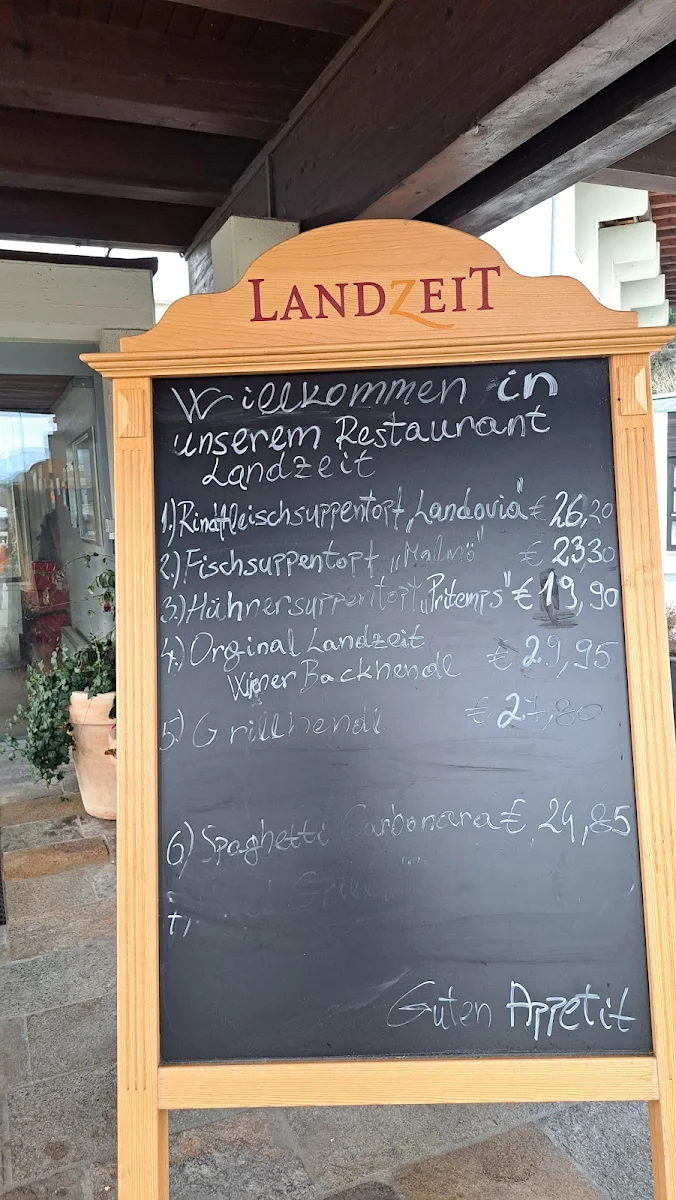 LANDZEIT
Willkommen in
unserem Restaurant
Landzeit
1.) Rindfleischsuppentopf „Landovia“ € 26,20
2.) Fischsuppentopf „Malmö“ € 23,30
3.) Hühnersuppentopf „Pritemps“ € 19,90
4.) Orginal Landzeit
Wiener Backhendl € 29,95
5.) Grillhendl € 27,80
6.) Spaghetti Carbonara € 24,85
Guten Appetit